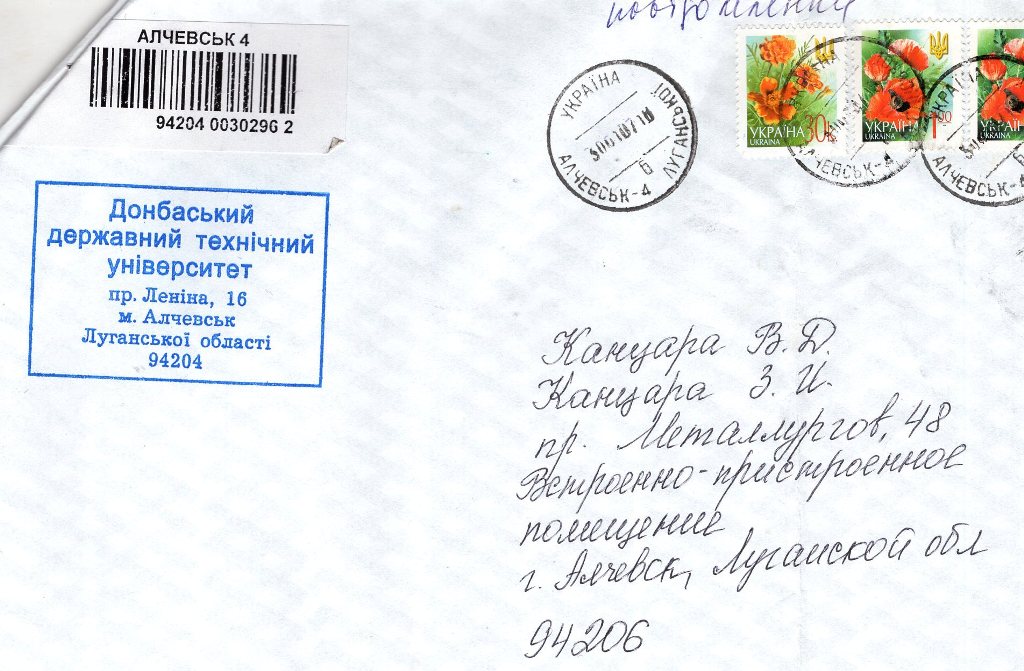 повідомлення
АЛЧЕВСЬК 4
94204 0030296 2
УКРАЇНА
ЛУГАНСЬКОЇ
300107 10
б
АЛЧЕВСЬК-4
УКРАЇНА 30к
UKRAINA
УКРАЇНА 1.00
UKRAINA
УКРАЇНА
UKRAINA
АЛЧЕВСЬК-4
АЛЧЕВСЬК-4
Донбаський
державний технічний
університет
пр. Леніна, 16
м. Алчевськ
Луганської області
94204
Канцара В. Д.
Канцара З. И.
пр. Металлургов, 48
Встроенно-пристроенное
помещение
г. Алчевск, Луганской обл
94206